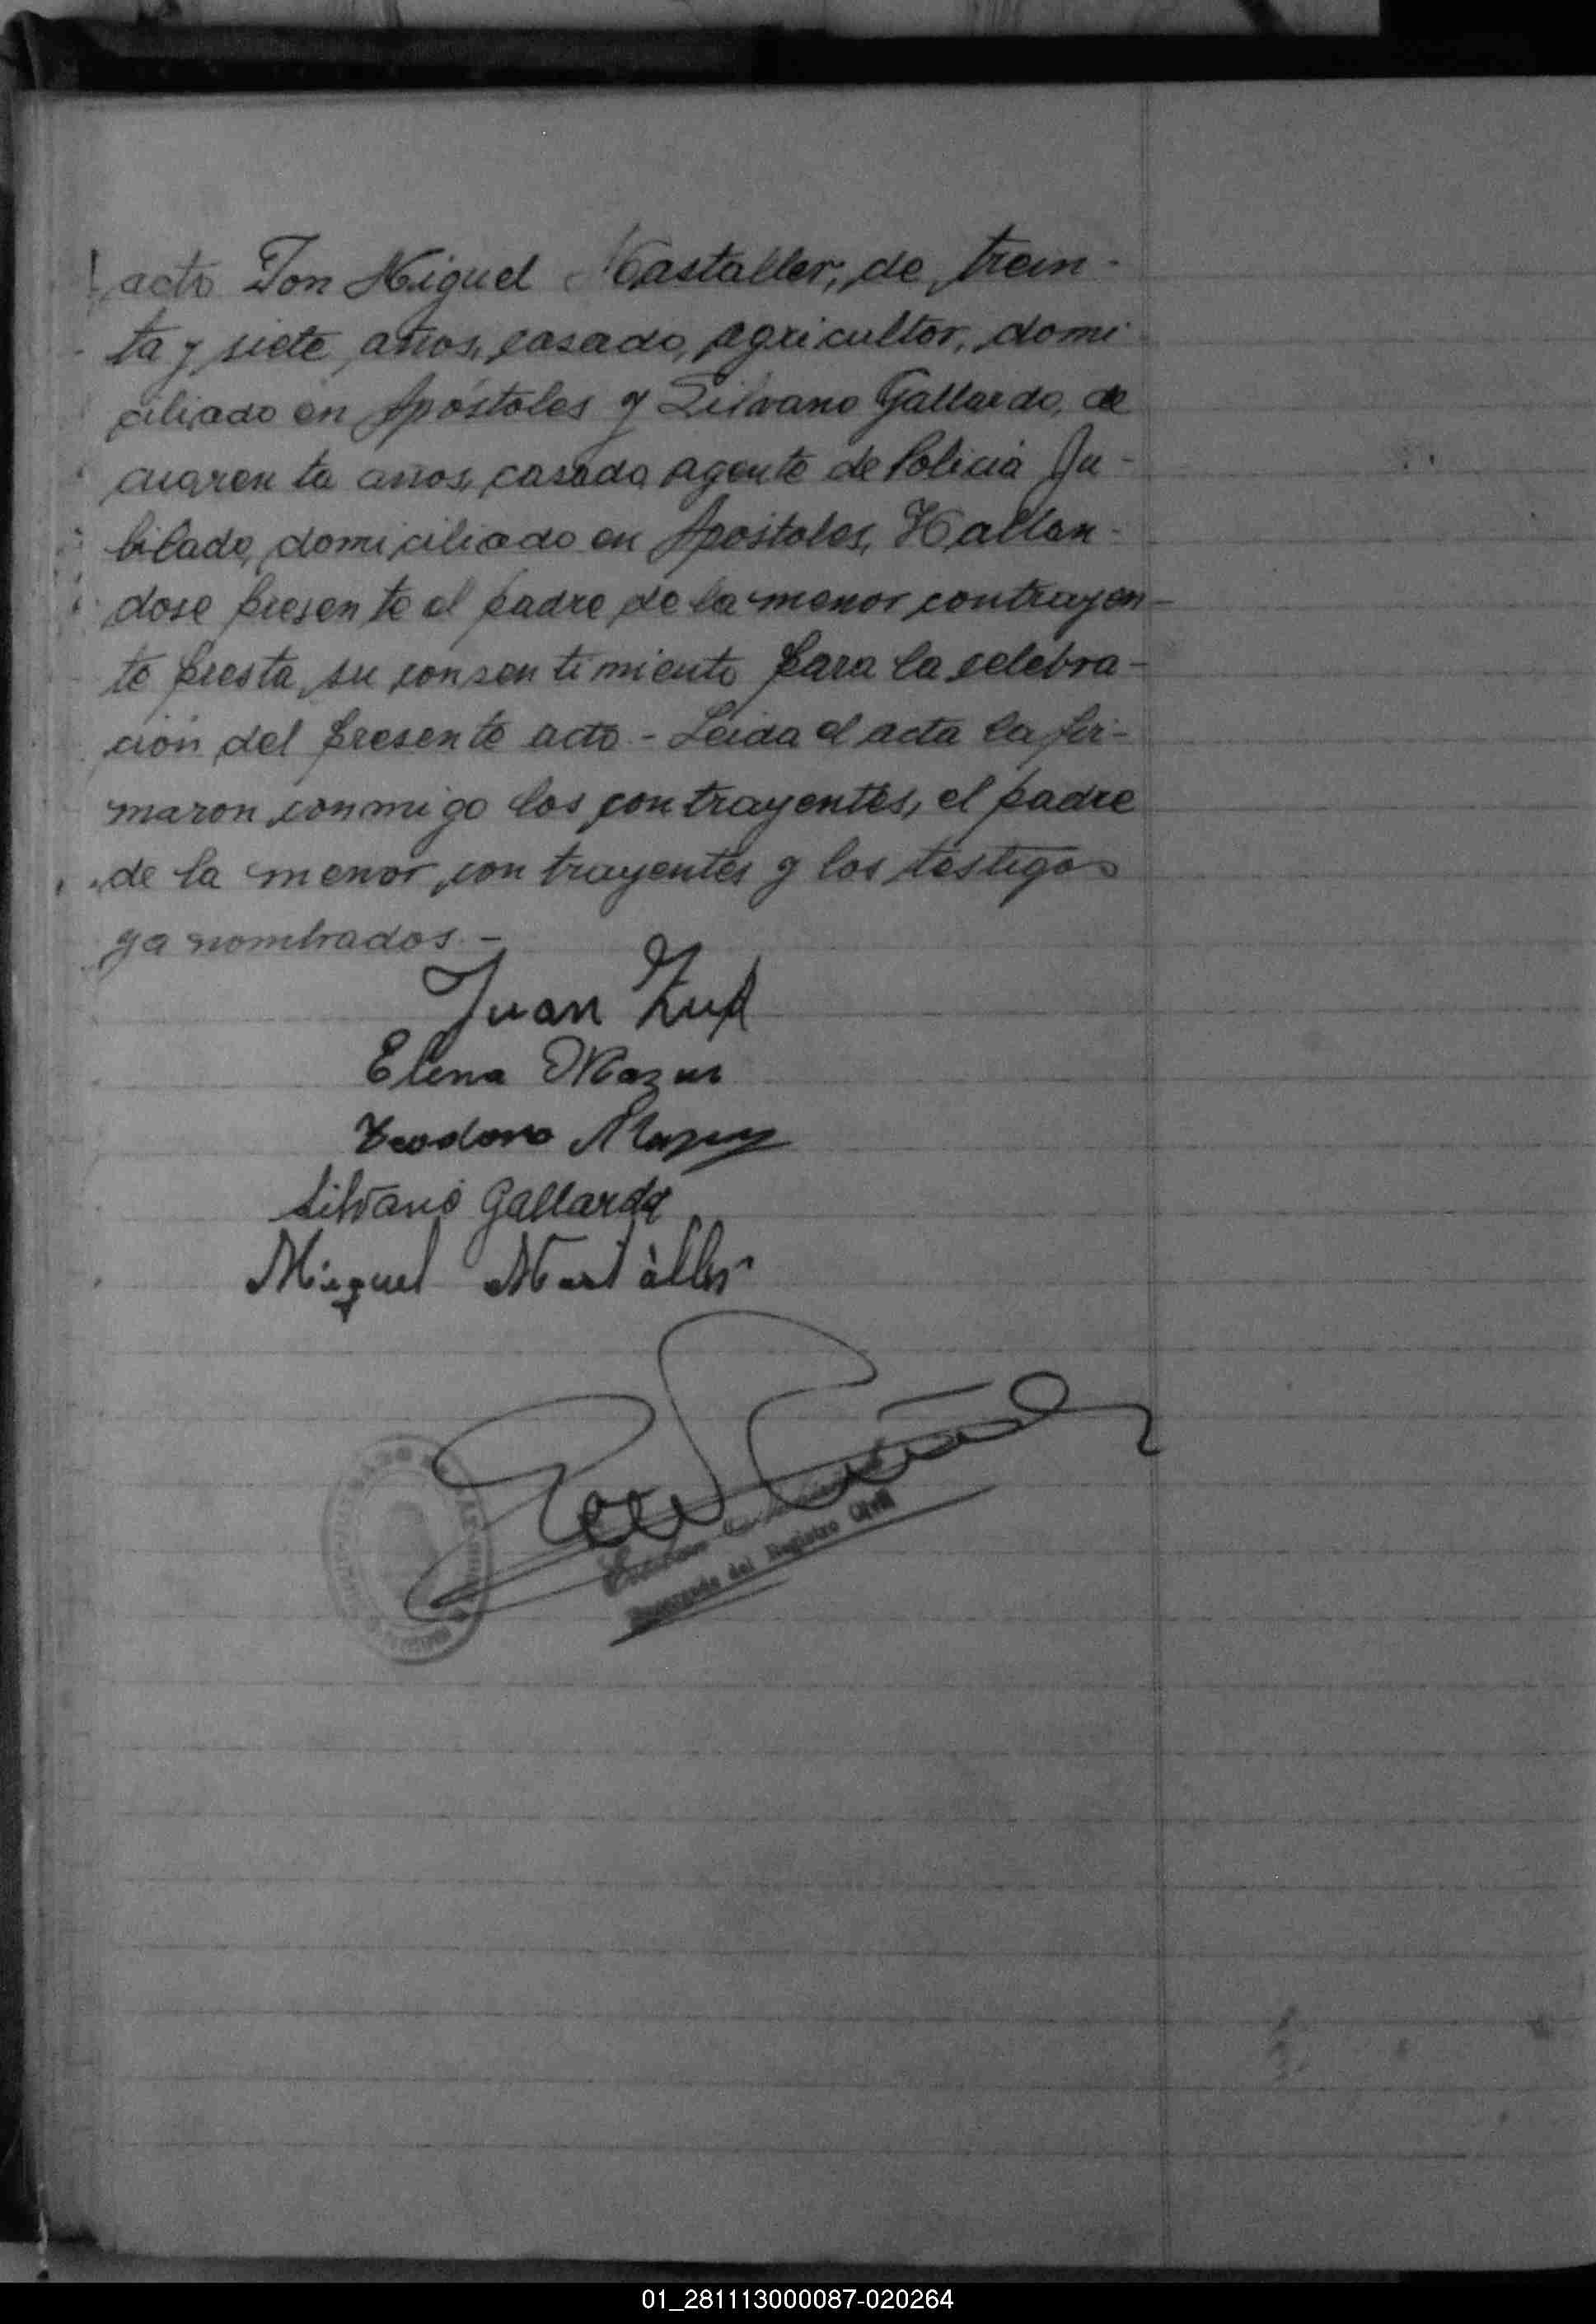 acto Don Miguel Mastaller, de trein-
ta y siete años, casado, agricultor, domi
ciliado en Apóstoles y Silvano Gallardo, de
cuarenta años, casado, agente de Policia Ju-
bilado, domiciliado en Apostoles, Hallan-
dose presente el padre de la menor contrayen-
te presta su consentimiento para la celebra-
ción del presente acto - Leida el acta la fir-
maron conmigo los contrayentes, el padre
de la menor contrayentes y los testigos
ya nombrados.-
Juan
Elena Mazur
Teodoro Mazur
Silvano Gallardo
Miguel Mastaller
Encargado del Registro Civil
01_281113000087-020264